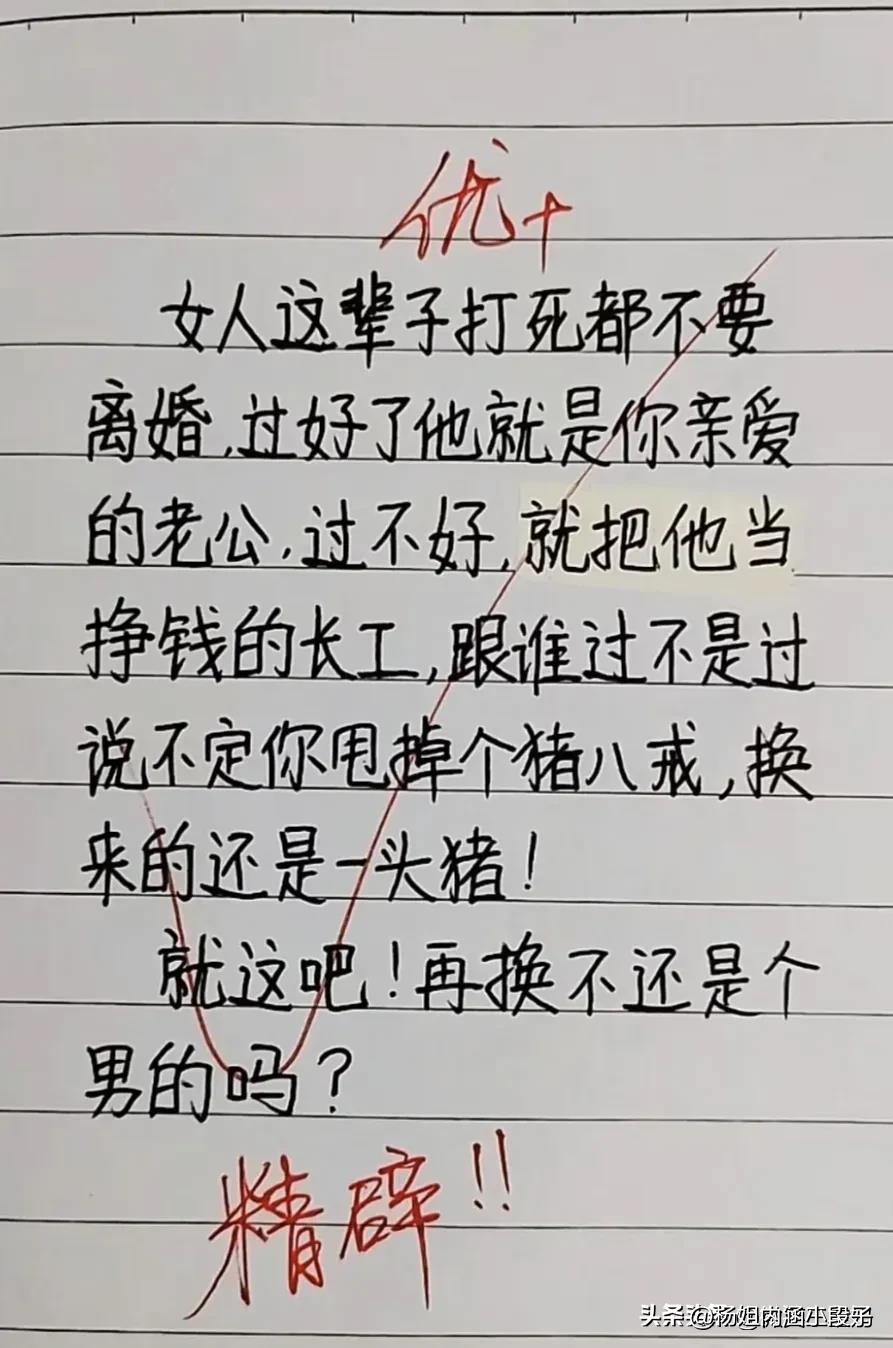 优+
女人这辈子打死都不要
离婚,过好了他就是你亲爱
的老公,过不好,就把他当
挣钱的长工,跟谁过不是过
说不定你甩掉个猪八戒,换
来的还是一头猪!
就这吧!再换不还是个
男的吗?
精辟!!
头条 @杨姐内涵小段子